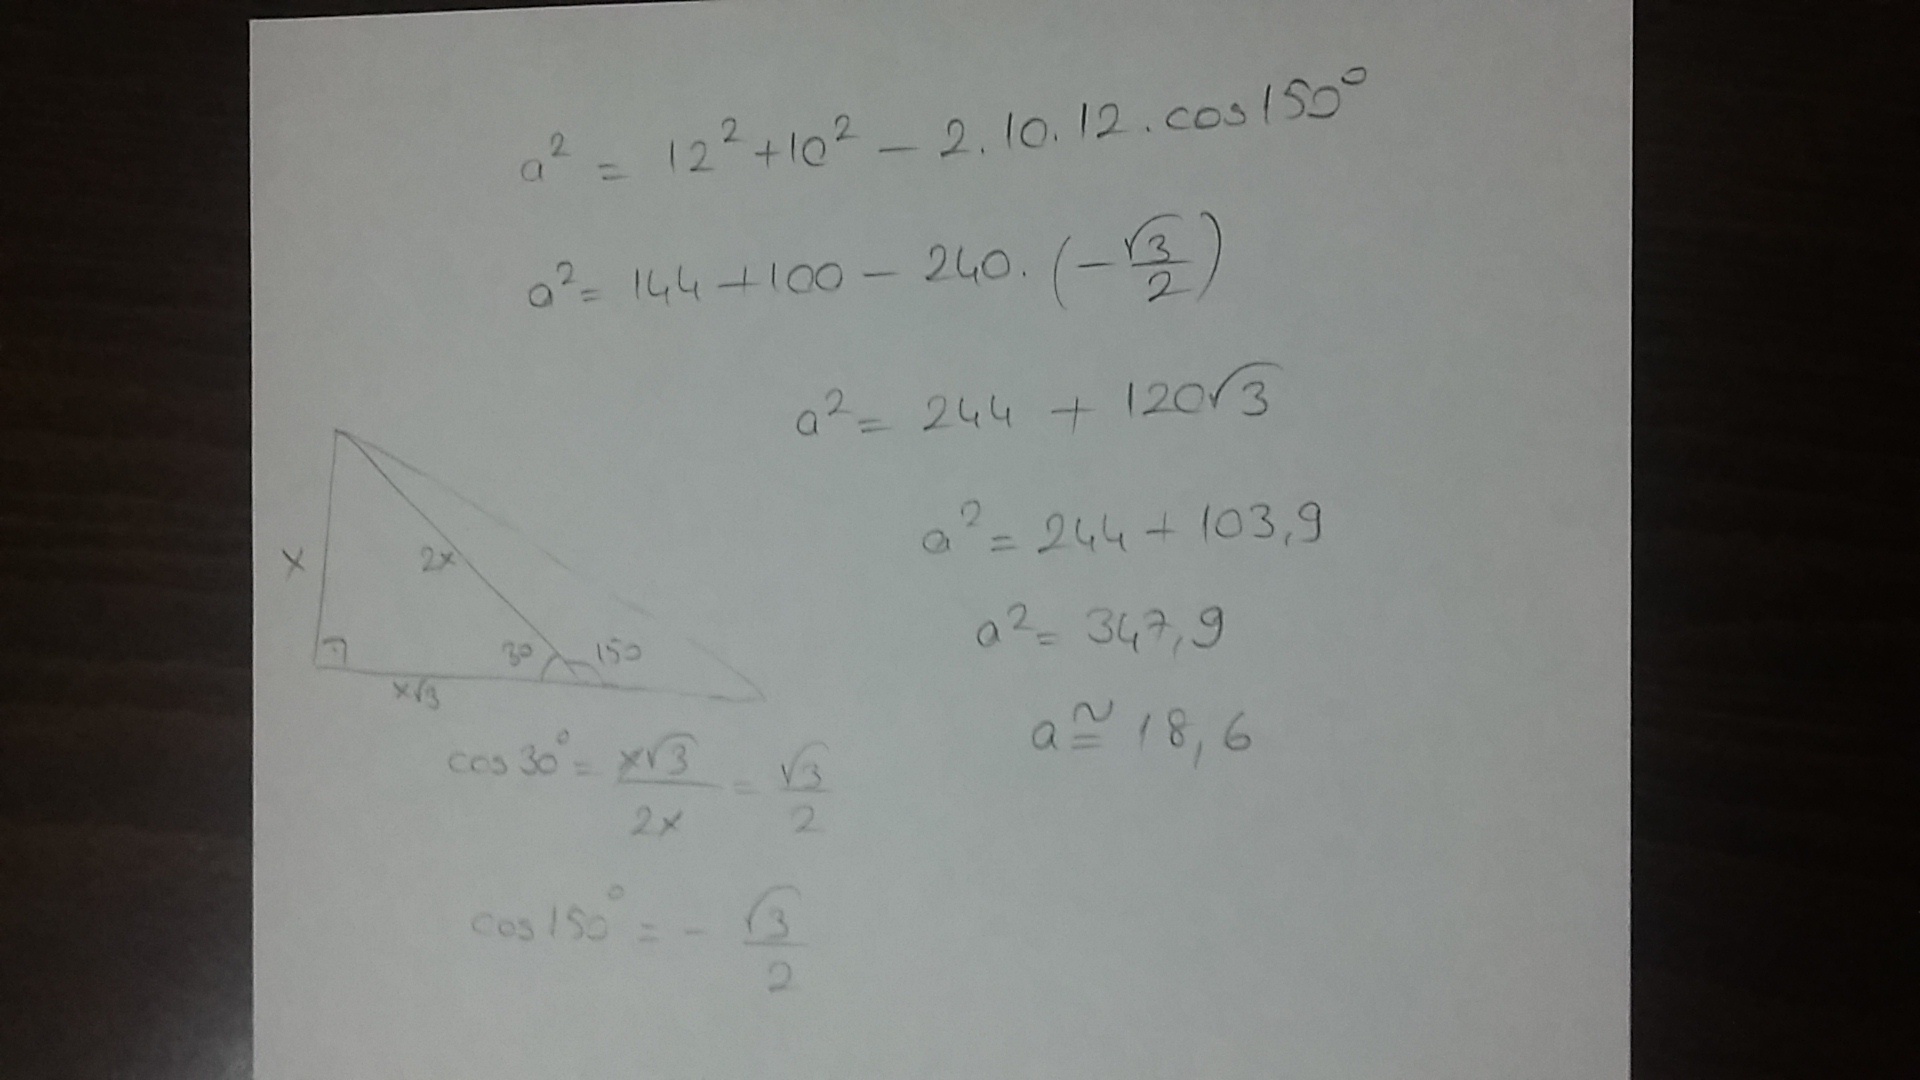 a² = 12² + 10² − 2.10.12.cos150°
a² = 144 + 100 − 240.(−√3/2)
a² = 244 + 120√3
a² = 244 + 103,9
a² = 347,9
a ≅ 18,6
x
2x
30 150
x√3
cos30° = x√3/2x = √3/2
cos150° = − √3/2